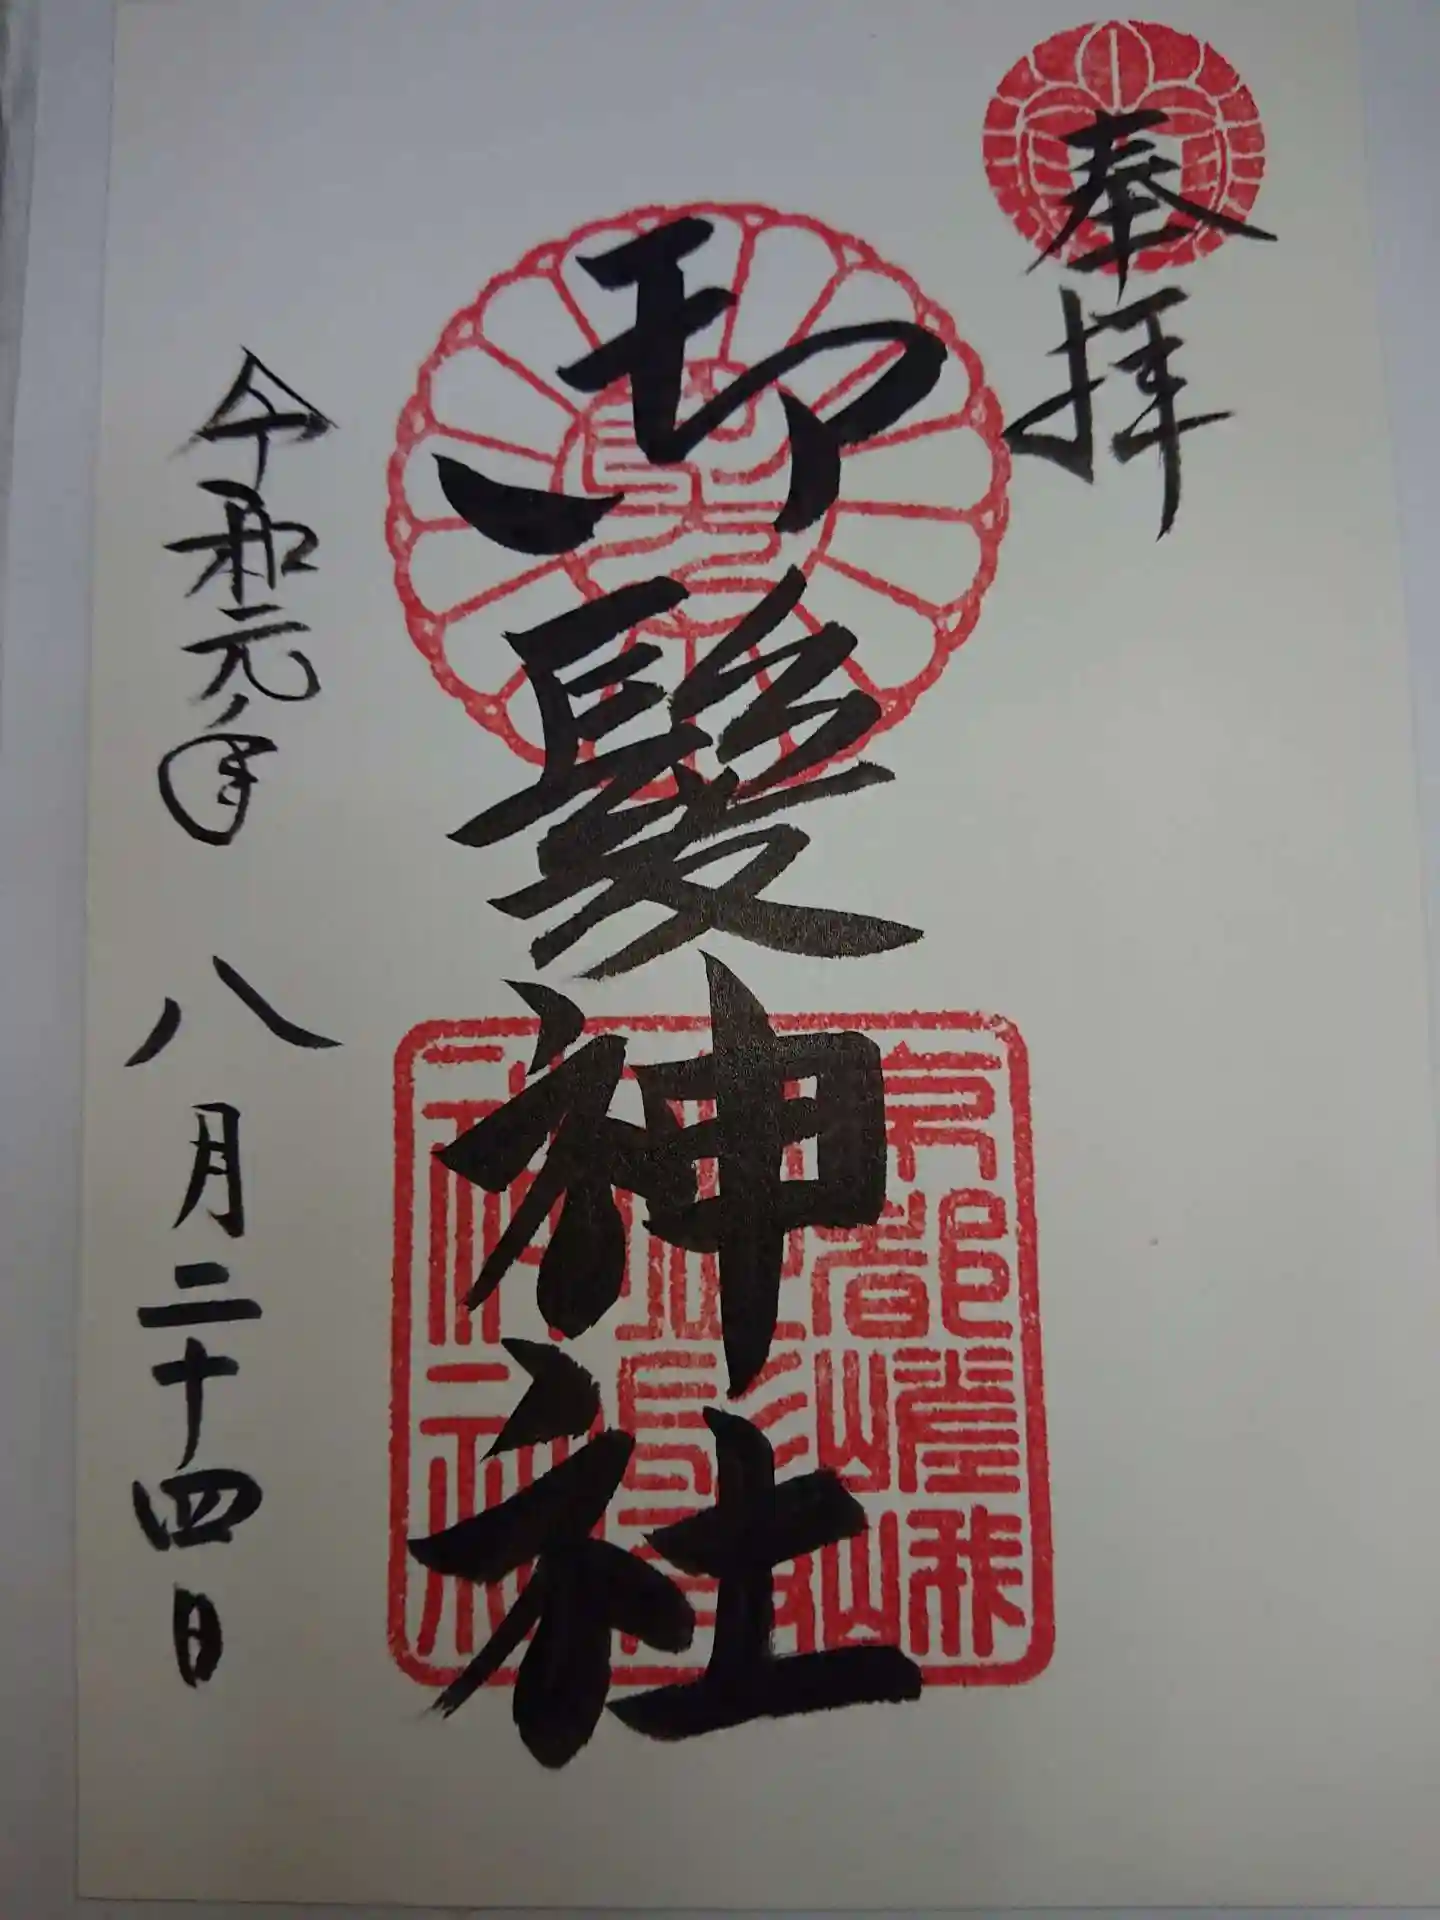 奉拝
御髪神社
京都嵯峨
小倉山山
御髪
神社
令和元年八月二十四日